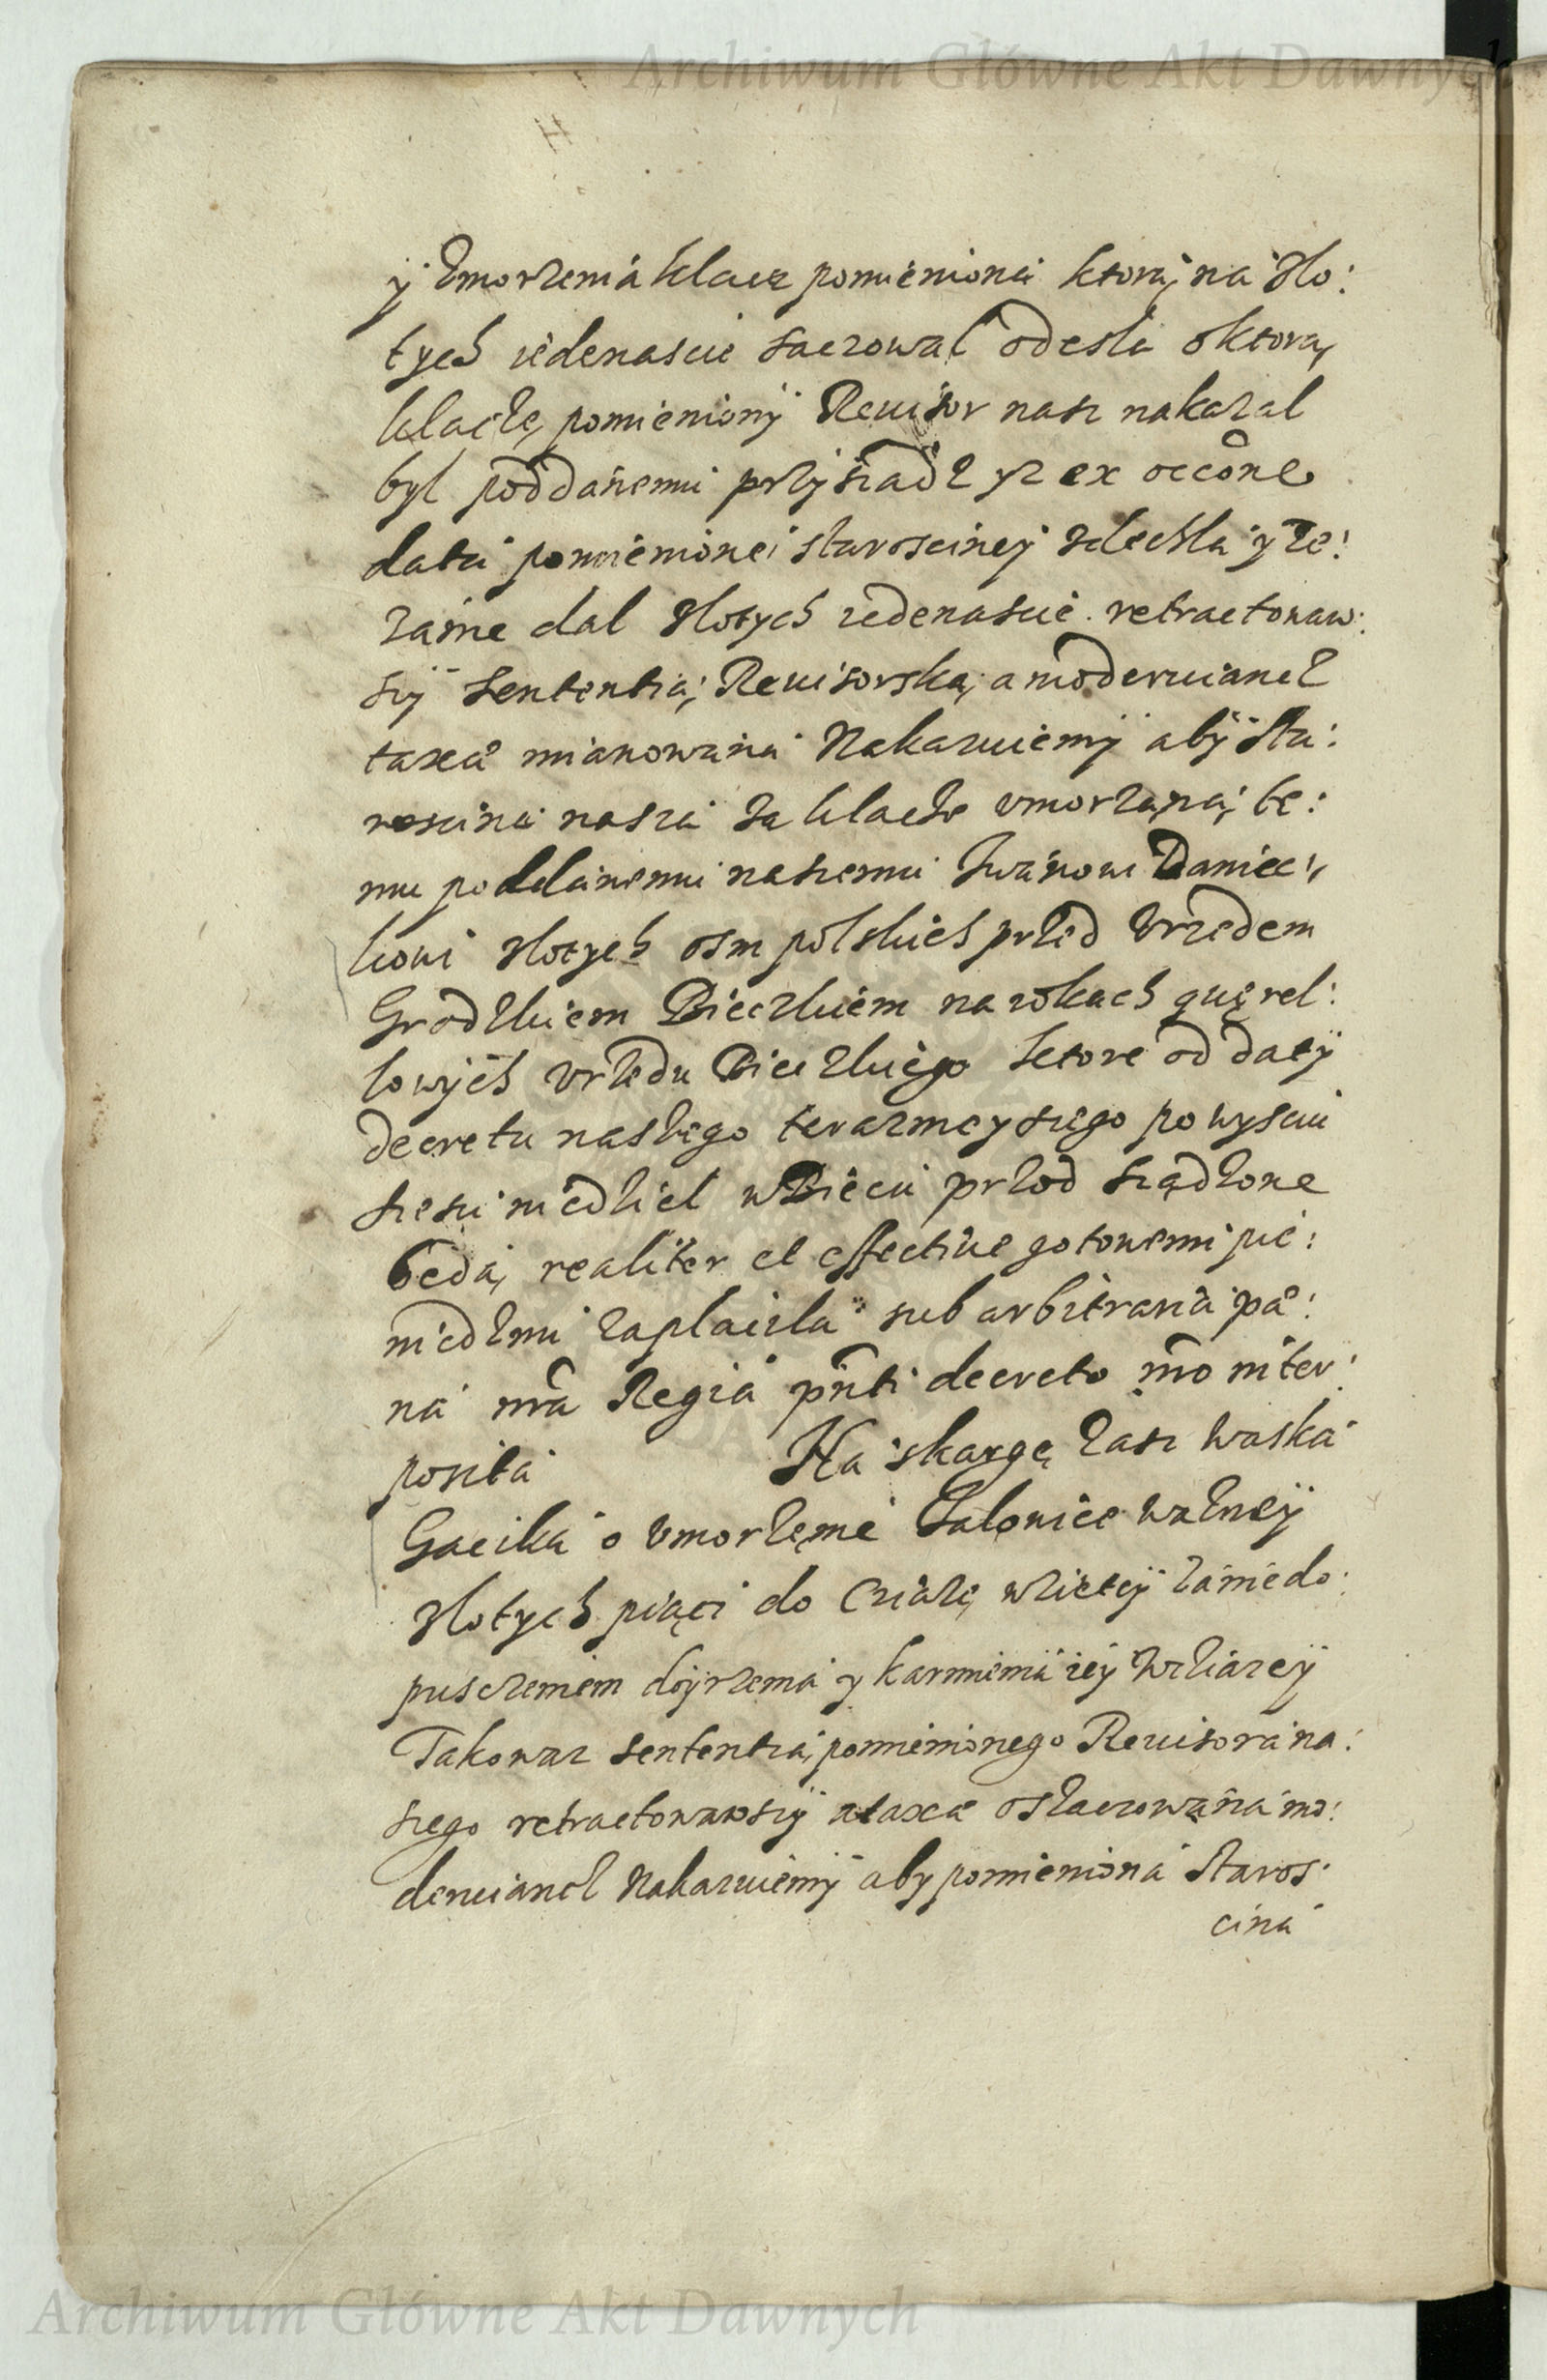 Archiwum Główne Akt Dawnych
y Vmorzenia klacz pomieniona ktorą na zło:
tych iedenascie sacował odeszla o ktorą
klaczę pomieniony Reuisor nasz nakazał
był poddanemu przysiadz yz ex occone
data pomienionei starosciney zdechła y ze:
za nie dal złotych iedenascie. retractowaw:
szy sententią Reuisorską a moderuiancz
taxa mianowana Nakazuiemy aby sta:
roscina nasza za klacze vmorzaną te:
mu poddanemu naszemu Iwanowi Daniec:
kowi złotych osm polskich przed Vrzedem
Grodzkiem Bieczkiem na rokach querel:
lowych vrzedu Bieczkiego ktore od daty
decretu naszego terazneyszego po wysciu
szesci niedziel w Bieczu przod sządzone
będą realiter et effectiue gotowemi pie:
niedzmi zaplacila sub arbitraria pæ:
na nra Regia pnti decreto nro inter:
posita Na skargę zasz Waska
Gacika o vmorzęnie Ialowice walney
złotych piąci do Cziąze wzietey za niedo:
pusczeniem doyrzenia y karmienia iey w cziązey
Takowaz sententią pomienionego Reuisora na:
szego retractowawszy a taxæ oszacowana mo:
deruiancz Nakazuiemy aby pomieniona Staros:
cina
Archiwum Główne Akt Dawnych